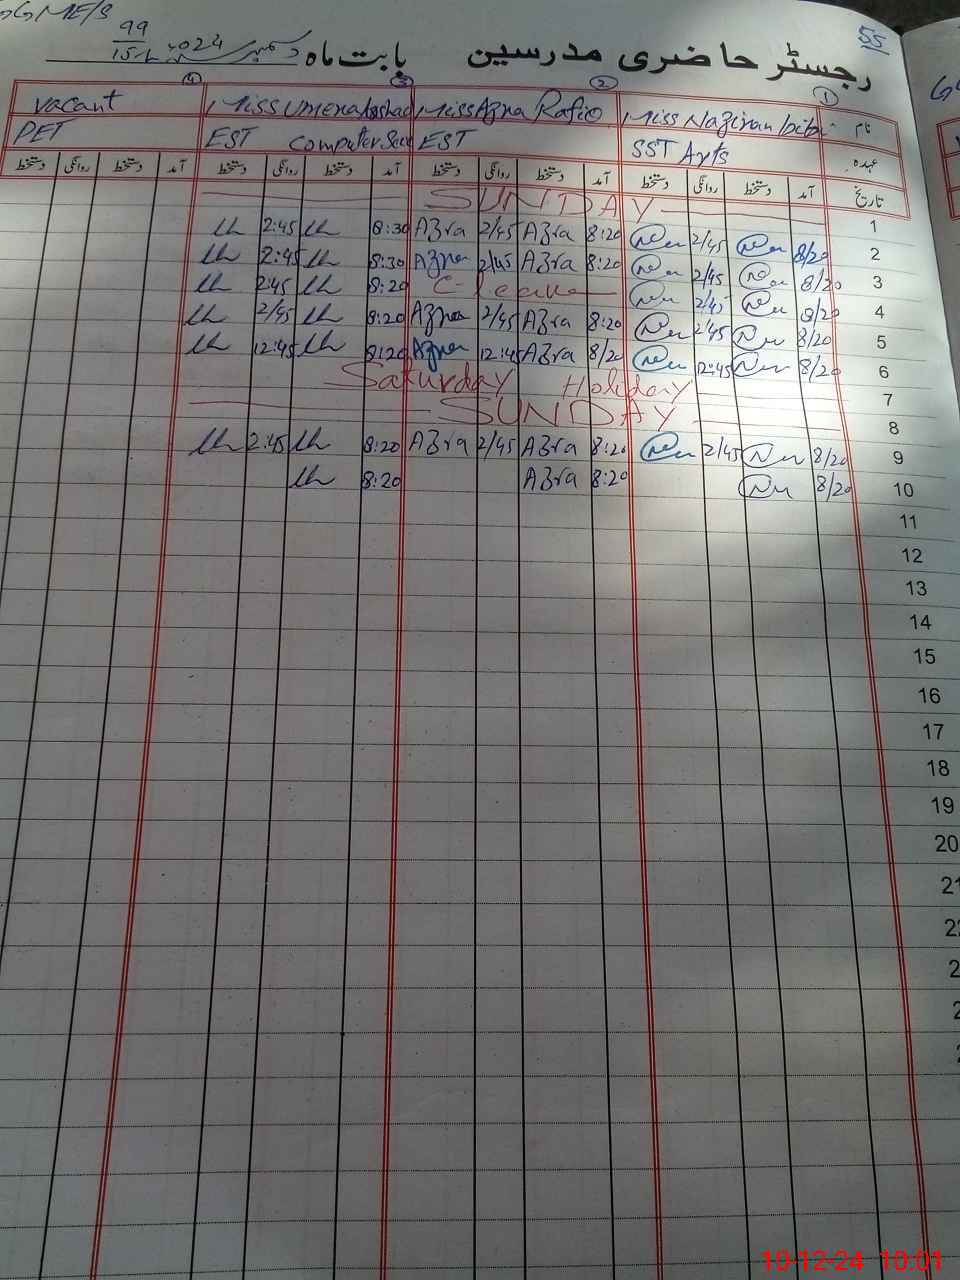 GGMES 99/15-L
رجسٹر حاضری مدرسین بابت ماہ دسمبر 2024
55
1 2 3 4
نام Miss Naziran bibi Miss Azra Rafiq Miss Umena Arshad vacant
عہدہ SST Arts EST EST Computer PET
تاریخ آمد دستخط روانگی دستخط آمد دستخط روانگی دستخط آمد دستخط روانگی دستخط آمد دستخط روانگی دستخط
1 SUNDAY
2 8/20 2/45 8:20 Azra 2/45 Azra 8:30 2:45
3 8/20 2/45 8:20 Azra 2/45 Azra 8:30 2:45
4 8/20 2/45 C-leave 8:20 2:45
5 8/20 2/45 8:20 Azra 2/45 Azra 8:20 2/45
6 8/20 12:45 8/20 Azra 12:45 Azra 8:20 12:45
7 Saturday Holiday
8 SUNDAY
9 8/20 2/45 8:20 Azra 2/45 Azra 8:20 2:45
10 8/20 8:20 Azra 8:20
11
12
13
14
15
16
17
18
19
20
21
10-12-24 10:01